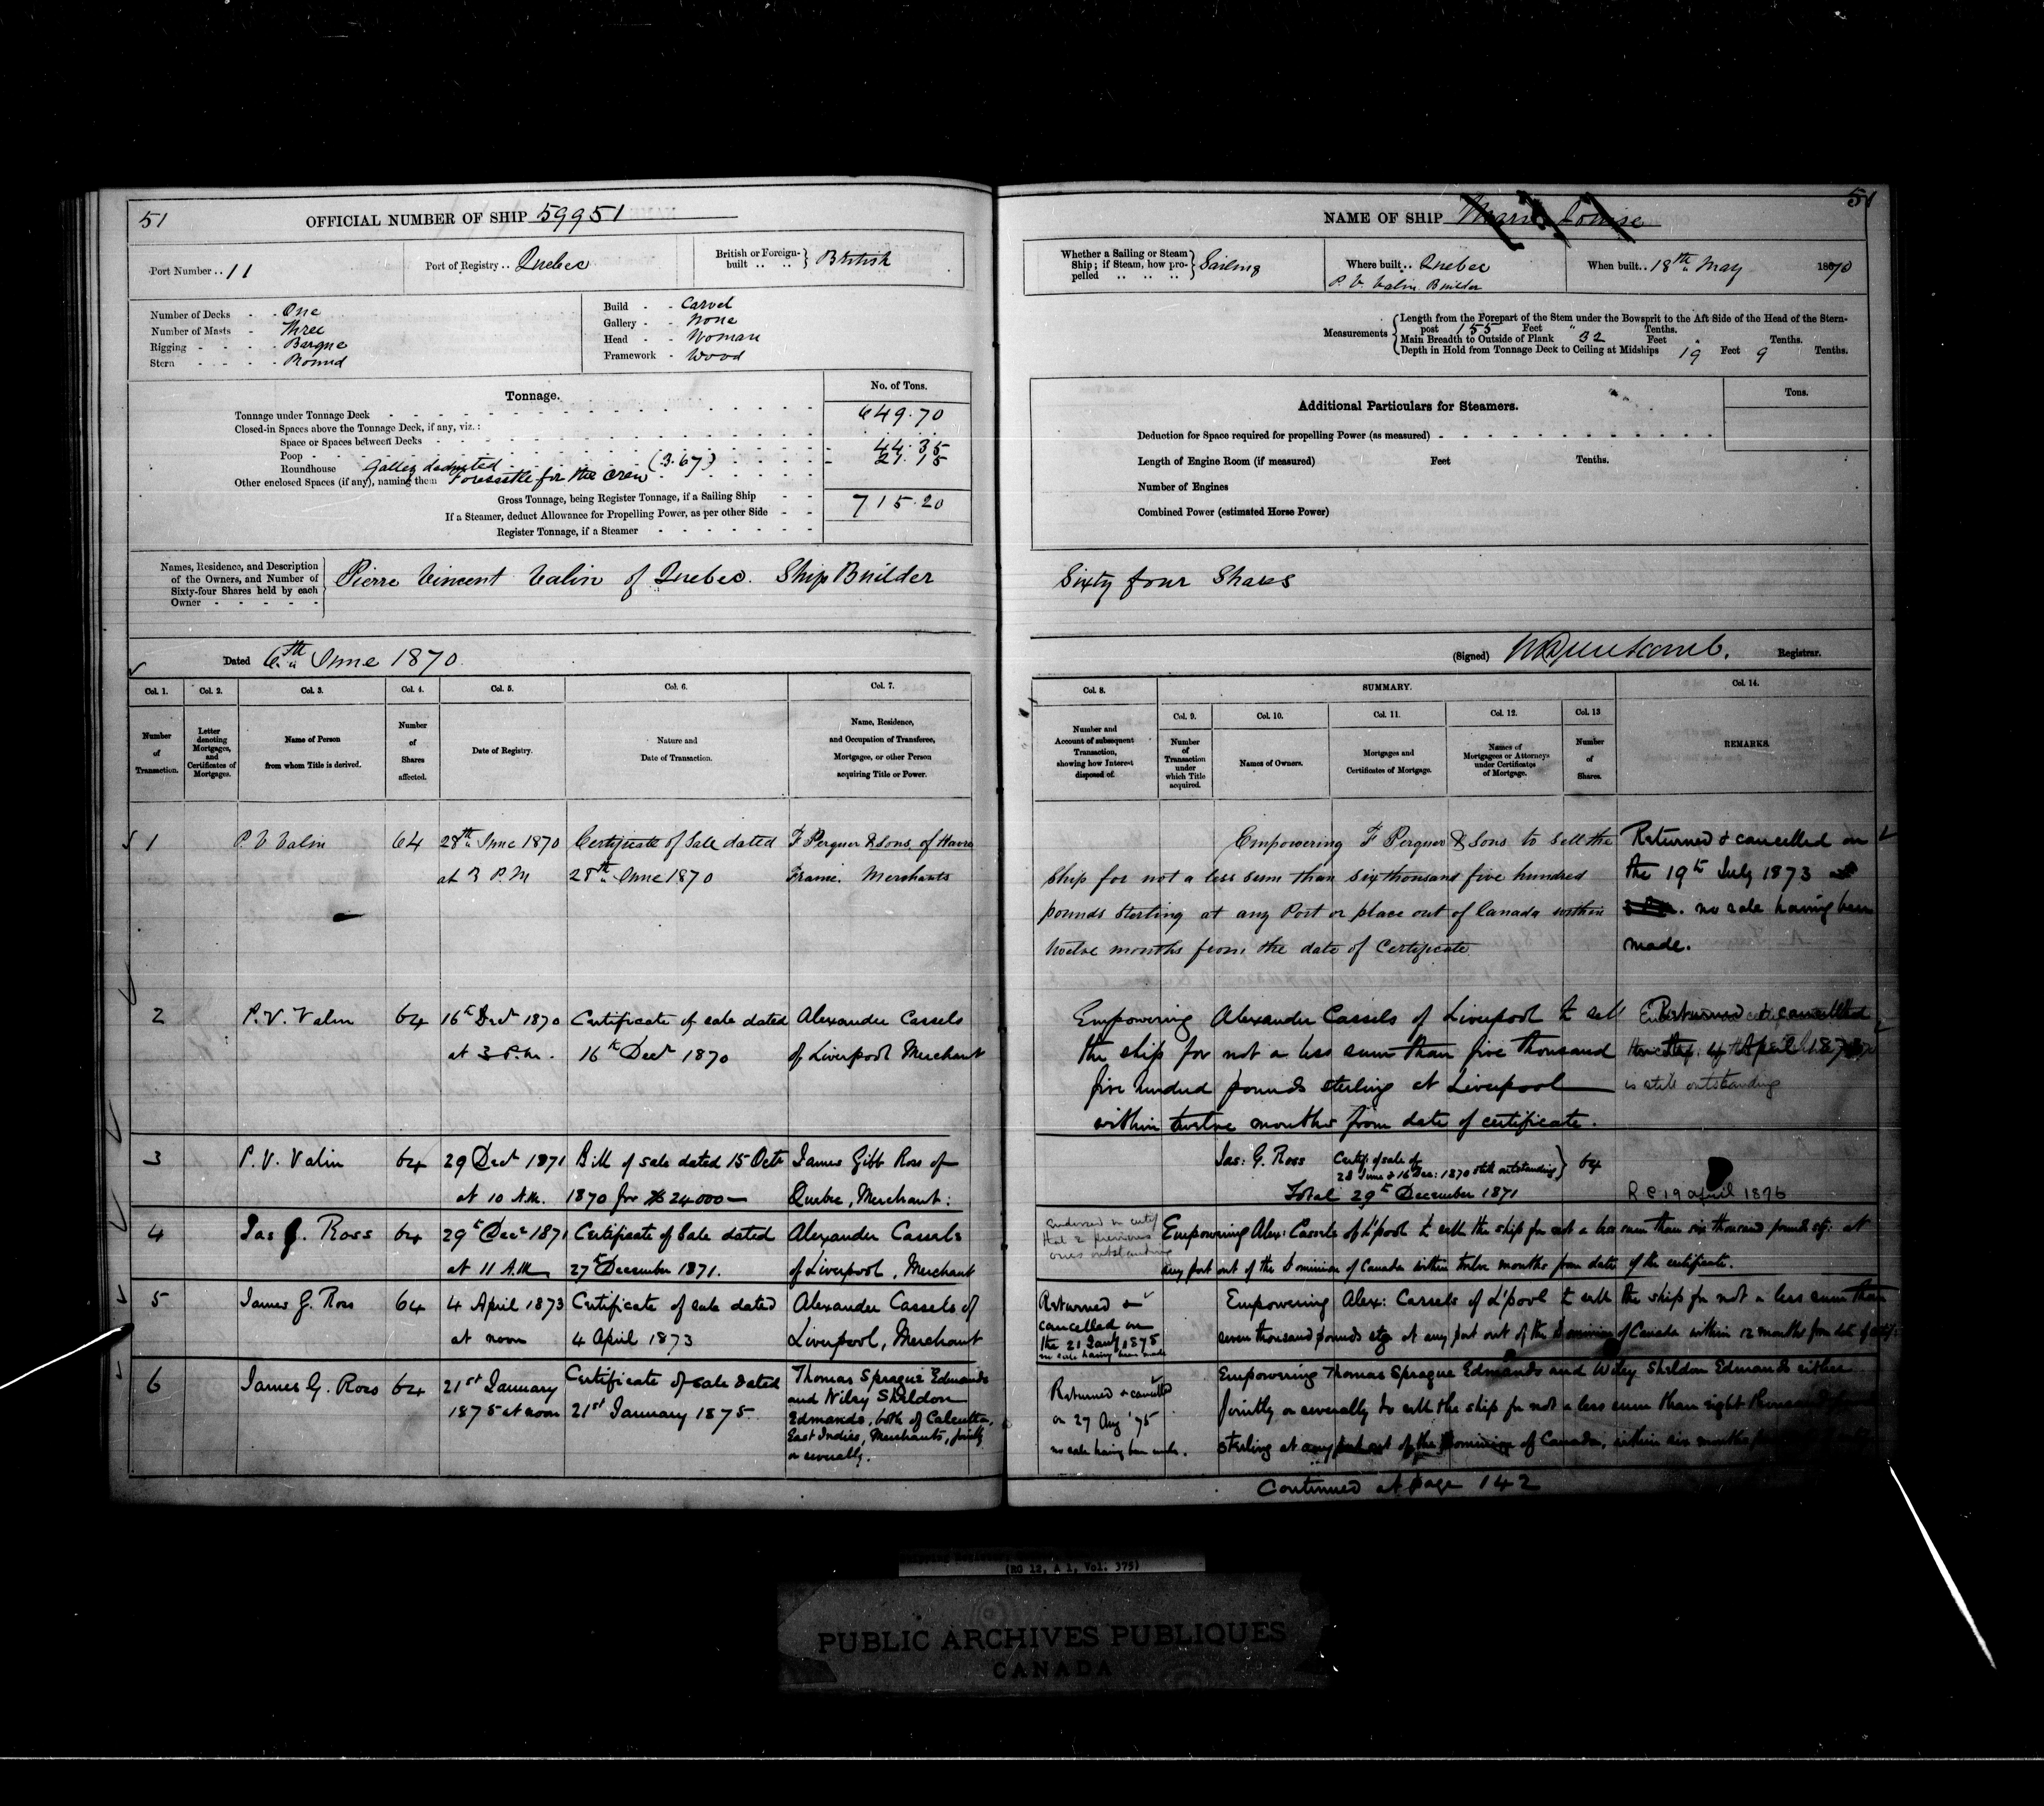 51
OFFICIAL NUMBER OF SHIP 59951
Port Number .. 11
Port of Registry .. Quebec
British or Foreign-built .. .. } British
Number of Decks - - One
Number of Masts - Three
Rigging - - - - Barque
Stern - - - - Round
Build - - Carvel
Gallery - - None
Head - - Woman
Framework - Wood
Tonnage.
No. of Tons.
Tonnage under Tonnage Deck 649.70
Closed-in Spaces above the Tonnage Deck, if any, viz.:
Space or Spaces between Decks
Poop 44.35
Roundhouse Galley deducted (3.67) 21.15
Other enclosed Spaces (if any), naming them Forecastle for the Crew
Gross Tonnage, being Register Tonnage, if a Sailing Ship 715.20
If a Steamer, deduct Allowance for Propelling Power, as per other Side
Register Tonnage, if a Steamer
Names, Residence, and Description of the Owners, and Number of Sixty-four Shares held by each Owner
Pierre Vincent Valin of Quebec. Ship Builder
Dated 6th June 1870.
Col. 1. Col. 2. Col. 3. Col. 4. Col. 5. Col. 6. Col. 7.
Number of Transaction.
Letter denoting Mortgages, and Certificates of Mortgages.
Name of Person from whom Title is derived.
Number of Shares affected.
Date of Registry.
Nature and Date of Transaction.
Name, Residence, and Occupation of Transferee, Mortgagee, or other Person acquiring Title or Power.
1 P V Valin 64 28th June 1870 Certificate of Sale dated F Perquer & Sons of Havre
at 3 P.M 28th June 1870 France. Merchants
2 P.V. Valin 64 16th Decr 1870 Certificate of sale dated Alexander Cassels
at 3 P.M. 16th Decr 1870 of Liverpool Merchant
3 P.V. Valin 64 29 Decr 1871 Bill of sale dated 15 Octr James Gibb Ross of
at 10 A.M. 1870 for $24000— Quebec, Merchant:
4 Jas G. Ross 64 29th Decr 1871 Certificate of Sale dated Alexander Cassels
at 11 A.M 27th December 1871. of Liverpool, Merchant
5 James G. Ross 64 4 April 1873 Certificate of sale dated Alexander Cassels of
at noon 4 April 1873 Liverpool, Merchant
6 James G. Ross 64 21st January Certificate of sale dated Thomas Sprague Edmands
1875 at noon 21st January 1875. and Wiley Sheldon
Edmands, both of Calcutta,
East Indies, Merchants, jointly
or severally.
51
NAME OF SHIP Marie Louise
Whether a Sailing or Steam Ship; if Steam, how propelled } Sailing
Where built .. Quebec
P. V. Valin Builder
When built .. 18th May 1870
Measurements
Length from the Forepart of the Stem under the Bowsprit to the Aft Side of the Head of the Stern-
post 155 Feet " Tenths.
Main Breadth to Outside of Plank 32 Feet Tenths.
Depth in Hold from Tonnage Deck to Ceiling at Midships 19 Feet 9 Tenths.
Additional Particulars for Steamers.
Tons.
Deduction for Space required for propelling Power (as measured)
Length of Engine Room (if measured) Feet Tenths.
Number of Engines
Combined Power (estimated Horse Power)
Sixty four Shares
(Signed) Registrar.
Col. 8. SUMMARY. Col. 14.
Col. 9. Col. 10. Col. 11. Col. 12. Col. 13
Number and Account of subsequent Transaction, showing how Interest disposed of.
Number of Transaction under which Title acquired.
Names of Owners.
Mortgages and Certificates of Mortgage.
Names of Mortgagees or Attorneys under Certificates of Mortgage.
Number of Shares.
REMARKS.
Empowering F Perquer & Sons to sell the
Ship for not a less sum than six thousand five hundred
pounds sterling at any Port or place out of Canada within
twelve months from the date of Certificate
Returned & cancelled on
the 19th July 1873
no sale having been
made.
Empowering Alexander Cassels of Liverpool to sell
the ship for not a less sum than five thousand
five hundred pounds sterling at Liverpool
within twelve months from date of certificate.
Returned & cancelled
April 1873
is still outstanding
Jas: G. Ross Certifs of sale of 64
28 June & 16 Dec: 1870 still outstanding}
Total 29th December 1871
R C 19 april 1876
Endorsed on certif
that 2 previous
ones outstanding
Empowering Alex: Cassels of L'pool to sell the ship for not a less sum than six thousand pounds stg: at
any port out of the Dominion of Canada within twelve months from date of the certificate.
Returned &
cancelled on
the 21 Jany 1875
no sale having been made
Empowering Alex: Cassels of L'pool to sell the ship for not a less sum than
seven thousand pounds stg at any port out of the Dominion of Canada within 12 months from date of certif:
Returned & cancelled
on 27 Aug '75
no sale having been made.
Empowering Thomas Sprague Edmands and Wiley Sheldon Edmands either
jointly or severally to sell the ship for not a less sum than eight thousand
sterling at any port out of the Dominion of Canada, within six months
Continued at page 142
(RG 12, A 1, Vol. 375)
PUBLIC ARCHIVES PUBLIQUES
CANADA